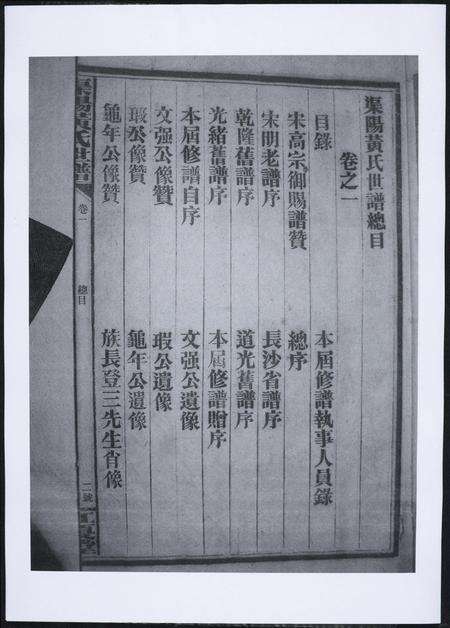 渠陽黃氏世譜總目
卷之一
目錄
本屆修譜執事人員錄
宋高宗御賜譜贊
總序
宋明老譜序
長沙省譜序
乾隆舊譜序
道光舊譜序
光緒舊譜序
本屆修譜贈序
本屆修譜自序
文强公遺像
文强公像贊
瑕公遺像
瑕公像贊
龜年公遺像
龜年公像贊
族長登三先生肖像
渠陽黃氏世譜
卷一
總目
二號